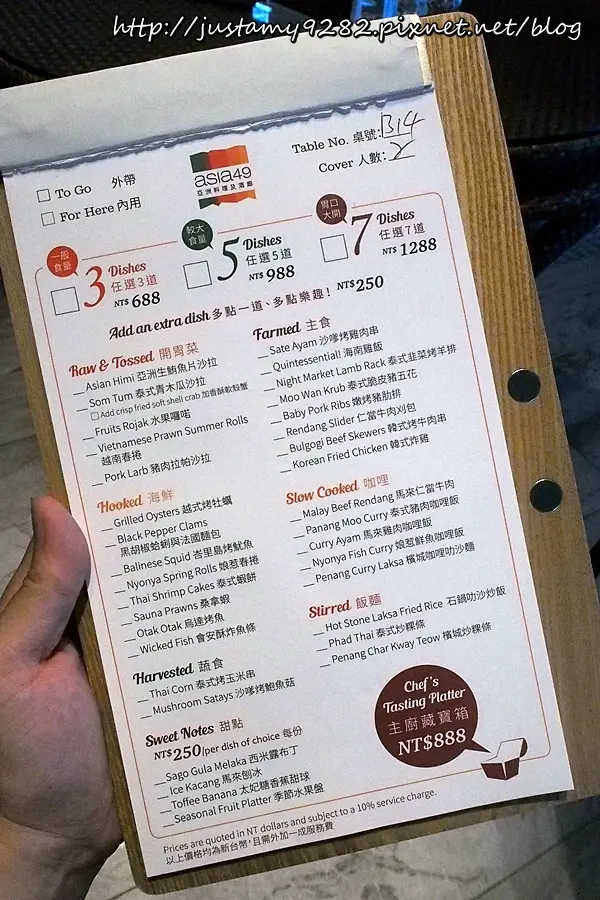 http://justamy9282.pixnet.net/blog
To Go 外帶
For Here 內用
asia49
亞洲料理及酒廊
Table No. 桌號: B14
Cover 人數: 2
一般食量
3 Dishes 任選3道
NT$ 688
較大食量
5 Dishes 任選5道
NT$ 988
胃口大開
7 Dishes 任選7道
NT$ 1288
Add an extra dish 多點一道、多點樂趣! NT$250
Raw & Tossed 開胃菜
Asian Himi 亞洲生鮪魚片沙拉
Som Tum 泰式青木瓜沙拉
Add crisp fried soft shell crab 加香酥軟殼蟹
Fruits Rojak 水果囉喏
Vietnamese Prawn Summer Rolls
越南春捲
Pork Larb 豬肉拉帕沙拉
Hooked 海鮮
Grilled Oysters 越式烤牡蠣
Black Pepper Clams
黑胡椒蛤蜊與法國麵包
Balinese Squid 峇里島烤魷魚
Nyonya Spring Rolls 娘惹春捲
Thai Shrimp Cakes 泰式蝦餅
Sauna Prawns 桑拿蝦
Otak Otak 烏達烤魚
Wicked Fish 會安酥炸魚條
Harvested 蔬食
Thai Corn 泰式烤玉米串
Mushroom Satays 沙嗲烤鮑魚菇
Sweet Notes 甜點
NT$250/per dish of choice 每份
Sago Gula Melaka 西米露布丁
Ice Kacang 馬來刨冰
Toffee Banana 太妃糖香蕉甜球
Seasonal Fruit Platter 季節水果盤
Farmed 主食
Sate Ayam 沙嗲烤雞肉串
Quintessential! 海南雞飯
Night Market Lamb Rack 泰式韭菜烤羊排
Moo Wan Krub 泰式脆皮豬五花
Baby Pork Ribs 嫩烤豬肋排
Rendang Slider 仁當牛肉刈包
Bulgogi Beef Skewers 韓式烤牛肉串
Korean Fried Chicken 韓式炸雞
Slow Cooked 咖哩
Malay Beef Rendang 馬來仁當牛肉
Panang Moo Curry 泰式豬肉咖哩飯
Curry Ayam 馬來雞肉咖哩飯
Nyonya Fish Curry 娘惹鮮魚咖哩飯
Penang Curry Laksa 檳城咖哩叻沙麵
Stirred 飯麵
Hot Stone Laksa Fried Rice 石鍋叻沙炒飯
Phad Thai 泰式炒粿條
Penang Char Kway Teow 檳城炒粿條
Chef's
Tasting Platter
主廚藏寶箱
NT$888
Prices are quoted in NT dollars and subject to a 10% service charge.
以上價格均為新台幣,且需外加一成服務費